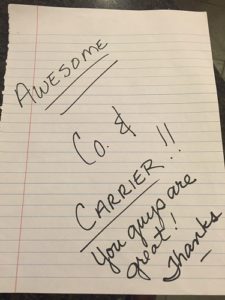 AWESOME
Co. &
CARRIER!!
You guys are
great!
Thanks